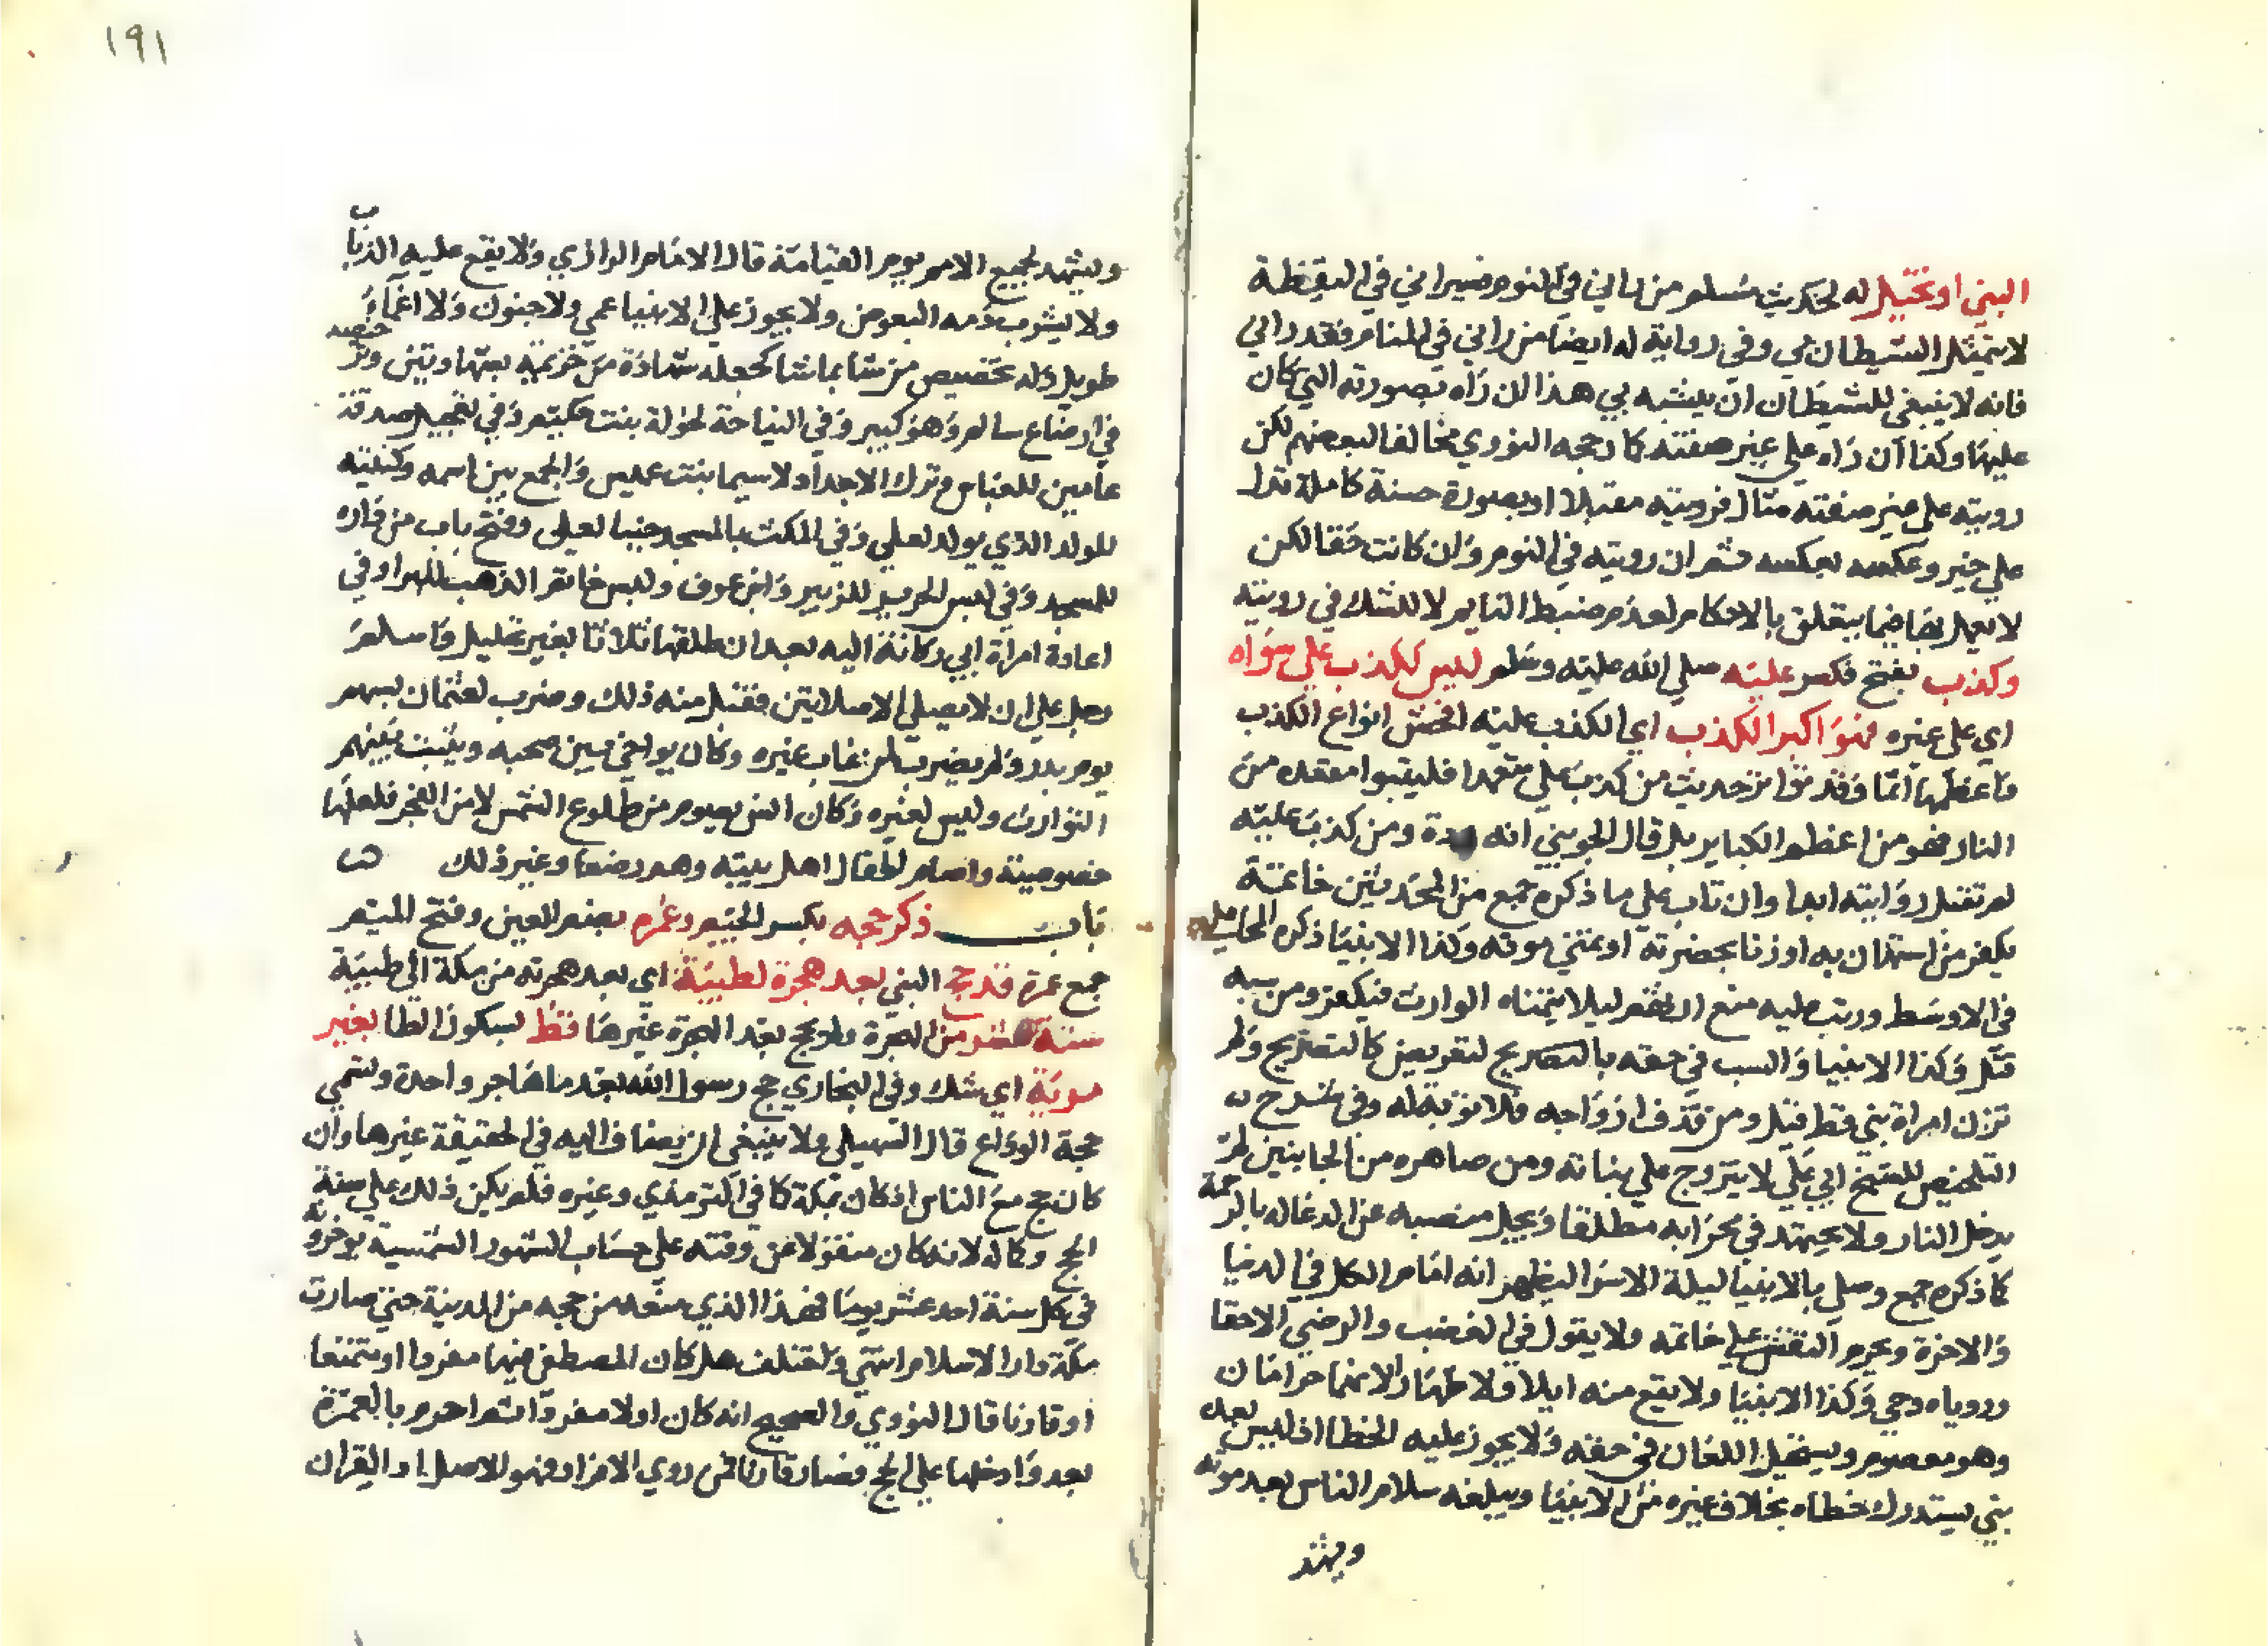 النبي او تخيل له لحديث مسلم من راني في النوم فسيراني في اليقظة
لا يتمثل الشيطان بي وفي رواية له ايضا من راني في المنام فقد راني
فانه لا ينبغي للشيطان ان يتشبه بي هذا ان راه بصورته التي كان
عليها وكذا ان راه علي غير صفته كما رجحه النووي مخالفا لبعضهم لكن
رويته على غير صفته مثال فرويته مقبلا او بصورة حسنة كاملة تدل
علي خير وعكسه بعكسه ثم ان رويته في النوم وان كانت حقا لكن
لا يعمل بها فيما يتعلق بالاحكام لعدم ضبط النايم لا للشك في رويته
وكذب بفتح فكسر عليه صلي الله عليه وسلم ليس ككذب علي سواه
اي علي غيره فهو اكبر الكذب اي الكذب عليه افحش انواع الكذب
واعظمها اثما وقد تواتر حديث من كذب علي متعمدا فليتبوا مقعده من
النار فهو من اعظم الكباير بل قال الجويني انه ردة ومن كذب عليه
لم تقبل روايته ابدا وان تاب علي ما ذكره جمع من المحدثين خاتمة
يكفر من استهان به او زنا بحضرته او تمني موته وكذا الانبيا ذكره المحاملي
في الاوسط ورتب عليه منع ارثهم ليلا يتمناه الوارث فيكفر ومن سبه
قتل وكذا الانبيا والسب في حقه بالتصريح لتعريض كالتصريح ولم
تزن امراة نبي قط قيل ومن قذف ازواجه فلا توبة له وفي شرح
التلخيص للشيخ ابي علي لا يتزوج علي بناته ومن صاهره من الجانبين لم
يدخل النار ولا يجتهد في محرابه مطلقا ويجل منصبه عن الدعا له بالرحمة
كما ذكره جمع وصلي بالانبيا ليلة الاسرا ليظهر انه امام الكل في الدنيا
والاخرة ويحرم النقش علي خاتمه ولا يقول في الغضب والرضي الا حقا
وروياه وحي وكذا الانبيا ولا يقع منه ايلا ولا ظهار لانهما حرامان
وهو معصوم ويستحيل اللعان في حقه ولا يجوز عليه الخطا اذ ليس بعده
نبي يستدرك خطاه بخلاف غيره من الانبيا ويبلغه سلام الناس بعد موته
ويشهد
١٩١
ويشهد لجميع الامم يوم القيامة قال الامام الرازي ولا يقع عليه الذباب
ولا يشرب دمه البعوض ولا يجوز علي الانبيا عمي ولا جنون ولا اغماء
طويل وله تخصيص من شا بما شا كجعله شهادة خزيمة بشهادتين وترخيصه
في ارضاع سالم وهو كبير وفي النياحة لخولة بنت حكيم وفي تعجيل صدقة
عامين للعباس وترك الاحداد لاسما بنت عميس والجمع بين اسمه وكنيته
للولد الذي يولد لعلي وفي المكث بالمسجد جنبا لعلي وفتح باب من داره
للمسجد وفي لبس الحرير للزبير وابن عوف ولبس خاتم الذهب للبرا وفي
اعادة امراة ابي ركانة اليه بعد ان طلقها ثلاثا بغير تحليل واسلم
رجل علي ان لا يصلي الا صلاتين فقبل منه ذلك وضرب لعثمان بسهم
يوم بدر ولم يضرب لمن غاب غيره وكان يواخي بين صحبه ويثبت بينهم
التوارث وليس لغيره وكان انس يصوم من طلوع الشمس لا من الفجر فلعلها
خصوصية واصام اطفال اهل بيته وهم رضعا وغير ذلك
باب ذكر حججه بكسر الجيم وعمره بضم العين وفتح الميم
جمع عمرة قد حج النبي بعد هجرة لطيبة اي بعد هجرته من مكة الي طيبة
سنة عشر من الهجرة ولم يحج بعد الهجرة غيرها فقط بسكون الطا بغير
مرية اي شك وفي البخاري حج رسول الله بعد ما هاجر واحدة وتسمي
حجة الوداع قال السهيلي ولا ينبغي ان يضاف اليه في الحقيقة غيرها وان
كان حج مع الناس اذ كان بمكة كما في الترمذي وغيره فلم يكن ذلك علي سنة
الحج وكماله لانه كان منقولا عن وقته علي حساب الشهور الشمسية يوخرونه
في كل سنة احد عشر يوما فهذا الذي منعه من حجه من المدينة حتي صارت
مكة دار الاسلام انتهي واختلف هل كان المصطفي فيها مفردا او متمتعا
او قارنا قال النووي والصحيح انه كان اولا مفردا ثم احرم بالعمرة
بعد وادخلها علي الحج فصار قارنا فمن روي الافراد فهو الاصل او القران